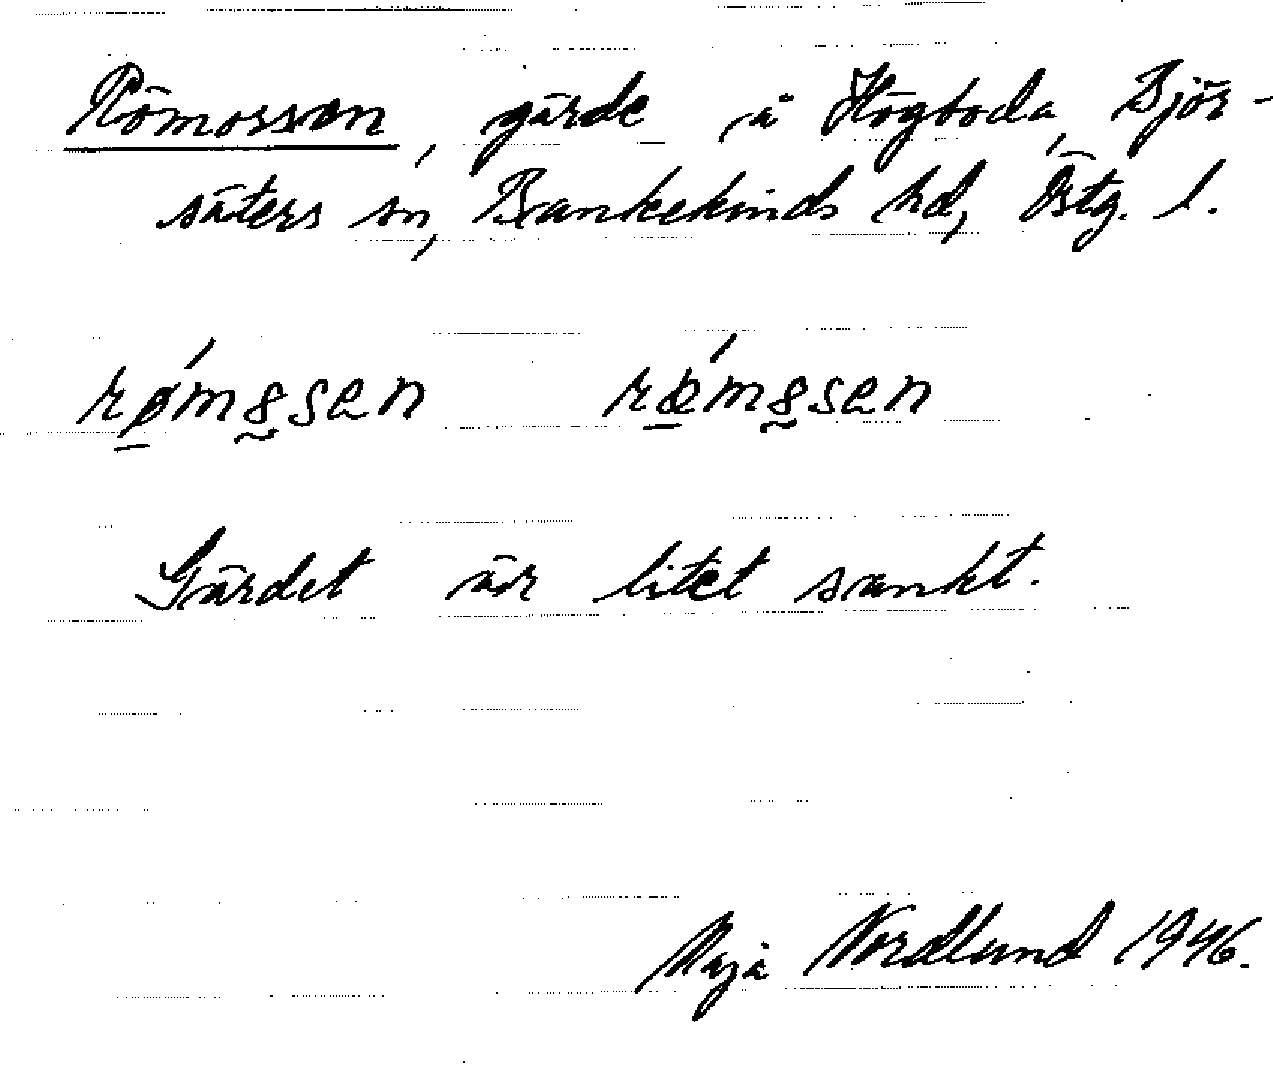 Römossen, gärde å Högboda, Björ-
säters sn, Bankekinds hd, Östg. l.
rǿmȣsen rǿmȣsen
Gärdet är litet sankt.
Maja Nordlund 1946.